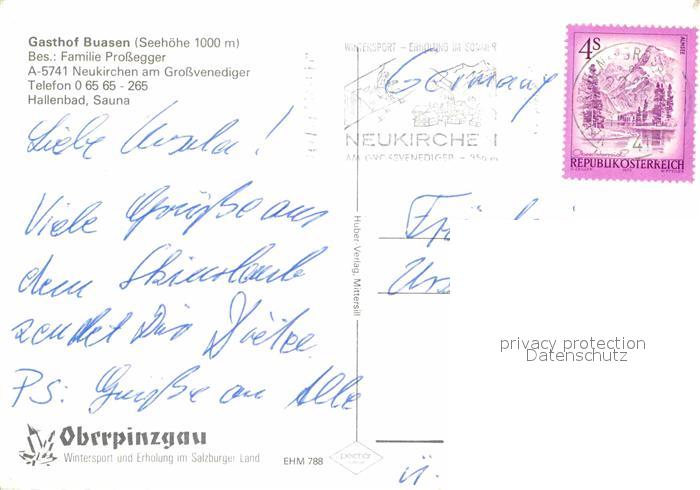 Gasthof Buasen (Seehöhe 1000 m)
Bes.: Familie Proßegger
A-5741 Neukirchen am Großvenediger
Telefon 0 65 65 - 265
Hallenbad, Sauna
WINTERSPORT - ERHOLUNG IM SOMMER
NEUKIRCHE
AM GROSSVENEDIGER - 856 m
4S
ALMSEE
REPUBLIK ÖSTERREICH
Germany
Liebe Ursula!
Viele Grüße aus
dem Skiurlaub
sendet Dir
PS: Grüße an Alle
Huber-Verlag, Mittersill
privacy protection
Datenschutz
Oberpinzgau
Wintersport und Erholung im Salzburger Land
EHM 788